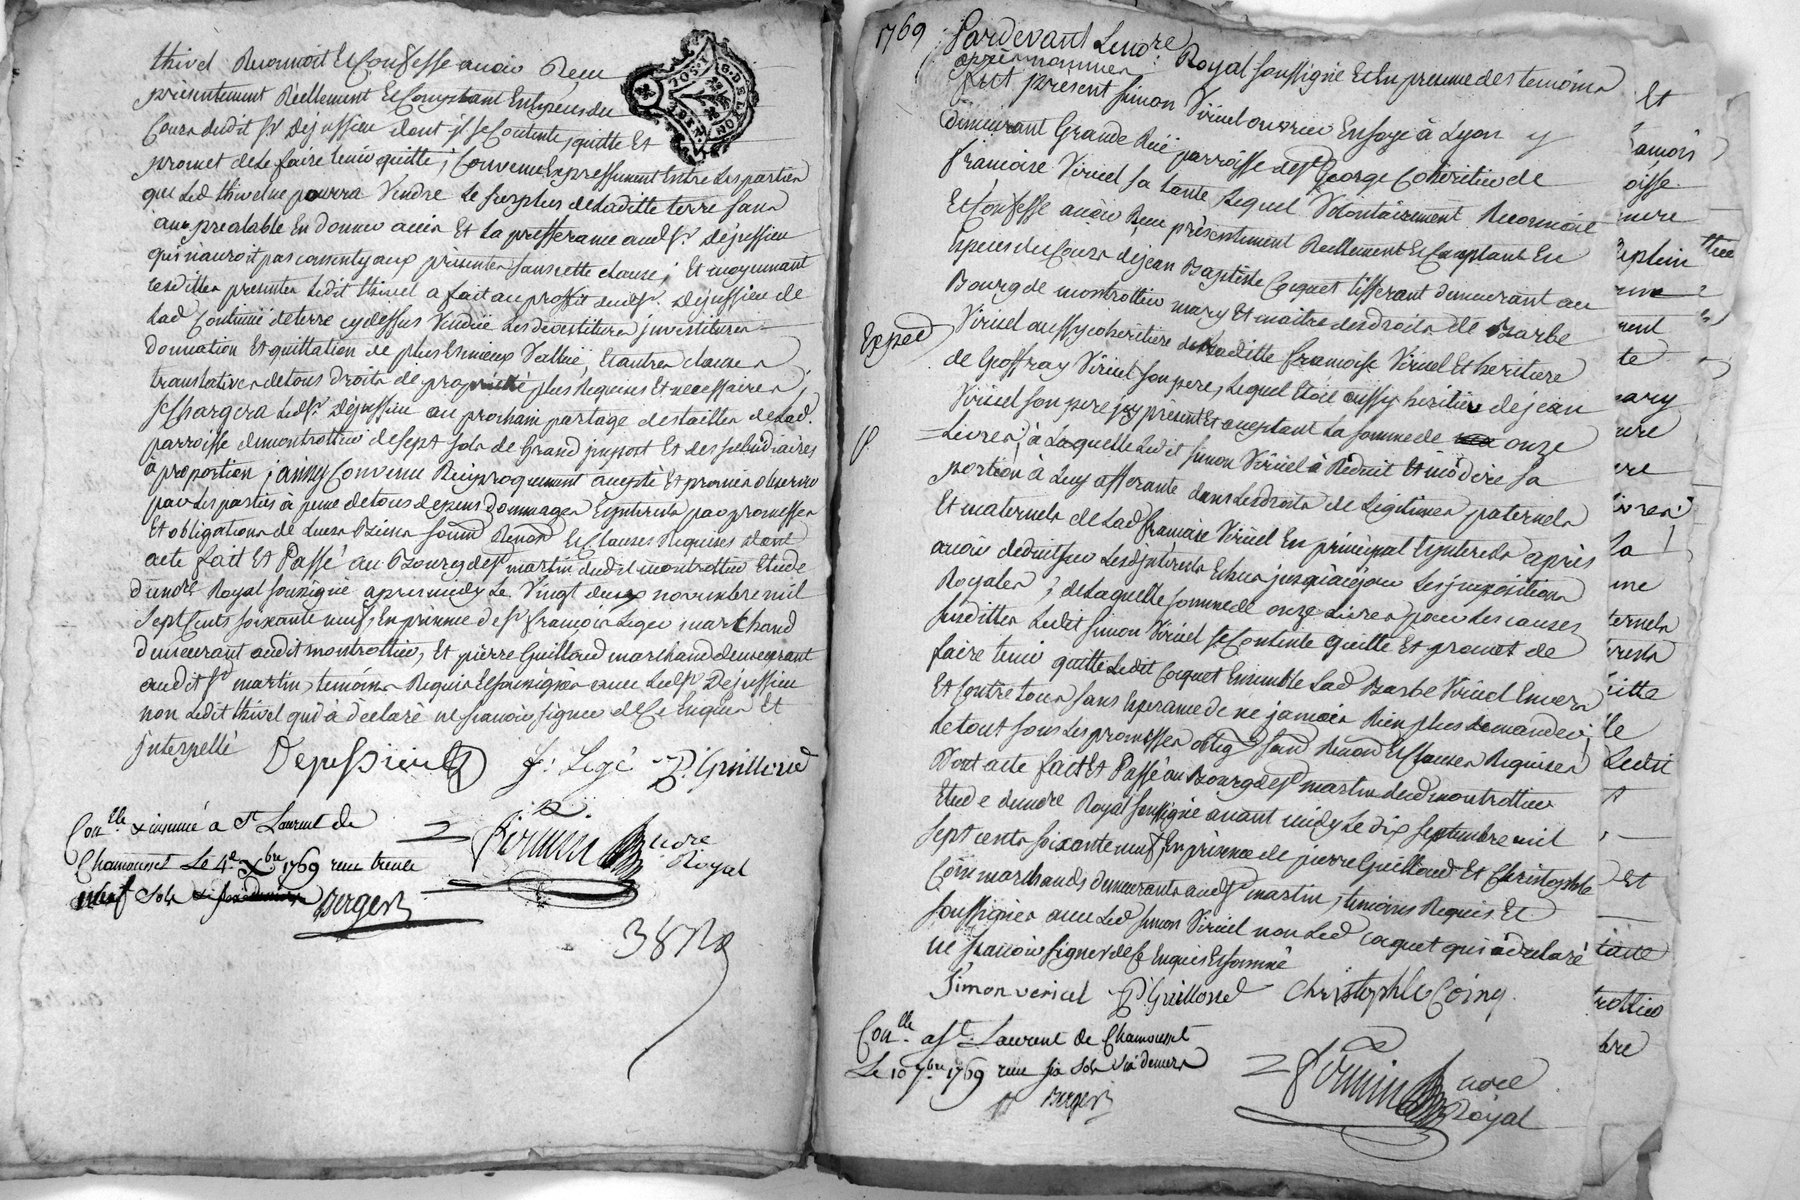 thivel Reconnoit Et Confesse avoir Reçu
présentement Réellement Et Comptant En Espèces du
Cours dudit Sr Dejussieu dont il se Contente, quitte Et
promet de le faire tenir quitte; Convenu Expressément Entre Les parties
que Led thivel ne pourra Vendre Le surplus de Ladite terre sans
au preálable En donner avis Et La presserance audt Sr Dejussieu
qui n'auroit pas consenty aux présentes sans cette clause; Et moyennant
cesdittes presentes ledit thivel a fait au proffit dudt Sr. Dejussieu de
Lad Contenüe de terre cy dessus Vendüe Les devestitures, jnvestitures
donnation Et quittation de plus Et mieux Vallüe, Et autres clauses
translatives de tous droits de proprieté plus Requises Et necessaires;
se Chargera Ledt Sr. Dejussieu au prochain partage des tailles de Lad.
parroisse de montrottier de sept sols de Grand jmpost Et des subsidiaires
a proportion; ainsy Convenu Reciproquement accepté Et promis observer
par Les parties à peine de tous depens dommages Et jnterests par promesses
Et obligations de Leurs Biens soumd Renond Et Clauses Requises dont
acte fait Et Passé au Bourg de St martin dudit montrottier Etude
du nore Royal soussigné apres midy Le Vingt deux novembre mil
sept Cents soixante neuf, En présence de Sr françois Legé marchand
demeurant audit montrottier, Et pierre Guilloud marchand demeurant
audit St martin, témoins Requis Et soussignés avec Ledt Sr Dejussieu
non Ledit thivel qui à déclaré ne sçavoir signer de ce Enquis Et
jnterpellé
Dejussieu f. Legé P. Guilloud
Conlle & insinué à St Laurent de
Chamousset Le 4e Xbre 1769 reçu trente
neuf sols
Berger
firmin nore
Royal
1769 Pardevant Le nore Royal soussigné Et En présence des temoins
après nommés
fut présent Simon Viricel ouvrier En soye à Lyon y
demeurant Grande Rüe parroisse de St George Cohéritier de
françoise Viricel sa tante, Lequel Volontairement Reconnoit
Et Confesse avoir Reçu présentement Réellement Et Comptant En
Espèces du Cours de jean Baptiste Coquet tisserant demeurant au
Bourg de montrottier mary Et maitre des droits de Barbe
Exped Viricel aussy cohéritiere de Laditte françoise Viricel Et héritiere
de Geoffray Viricel son pere, Lequel Etoit aussy héritier de jean
Viricel son pere jcy présent Et acceptant La somme de onze
Livres, à Laquelle Ledit Simon Viricel à Reduit Et modéré sa
portion à Luy afferante dans Les droits de Legitimes paternels
Et maternels de Lad françoise Viricel En principal Et jnterests après
avoir déduit sur Lesd jnterests Echus jusqu'à ce jour Les jmpositions
Royales; de Laquelle somme de onze Livres pour Les causes
susdittes Ledit Simon Viricel se Contente quitte Et promet de
faire tenir quitte Ledit Coquet Ensemble Lad Barbe Viricel Envers
Et contre tous, sans Esperance de ne jamais Rien plus demander;
le tout sous Les promesses obligd soumd Renond Et Clauses Requises
Dont acte fait Et Passé au Bourg de St martin dud montrottier
Etude du nore Royal soussigné avant midy Le dix septembre mil
sept cents soixante neuf, En présence de pierre Guilloud Et Christophle
Coin marchands demeurants audt St martin, temoins Requis Et
soussignés avec Led Simon Viricel non Led coquet qui à déclaré
ne sçavoir signer de ce Enquis Et sommé
Simon vericel P. Guilloud Christophle Coing.
Conlle a St. Laurent de Chamousset
Le 10 7bre 1769 reçu six sols six deniers
Berger
firmin nore
Royal